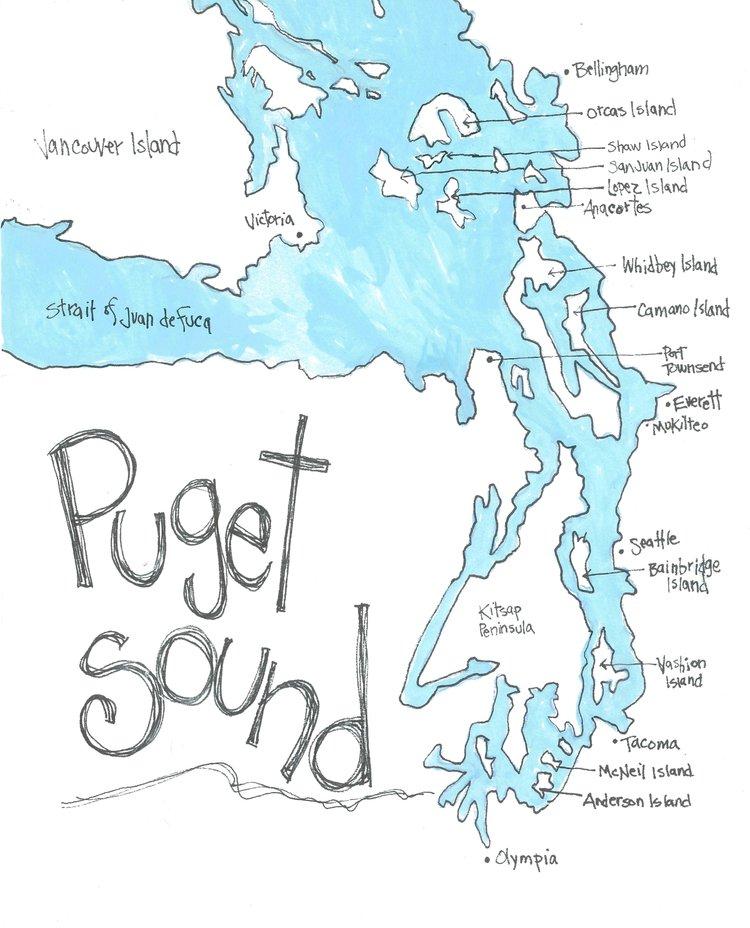 Bellingham
Orcas Island
Vancouver Island
Shaw Island
San Juan Island
Lopez Island
Anacortes
Victoria
Whidbey Island
Camano Island
Strait of Juan de Fuca
Port
Townsend
Everett
Mukilteo
Puget
Sound
Seattle
Bainbridge
Island
Kitsap
Peninsula
Vashion
Island
Tacoma
McNeil Island
Anderson Island
Olympia